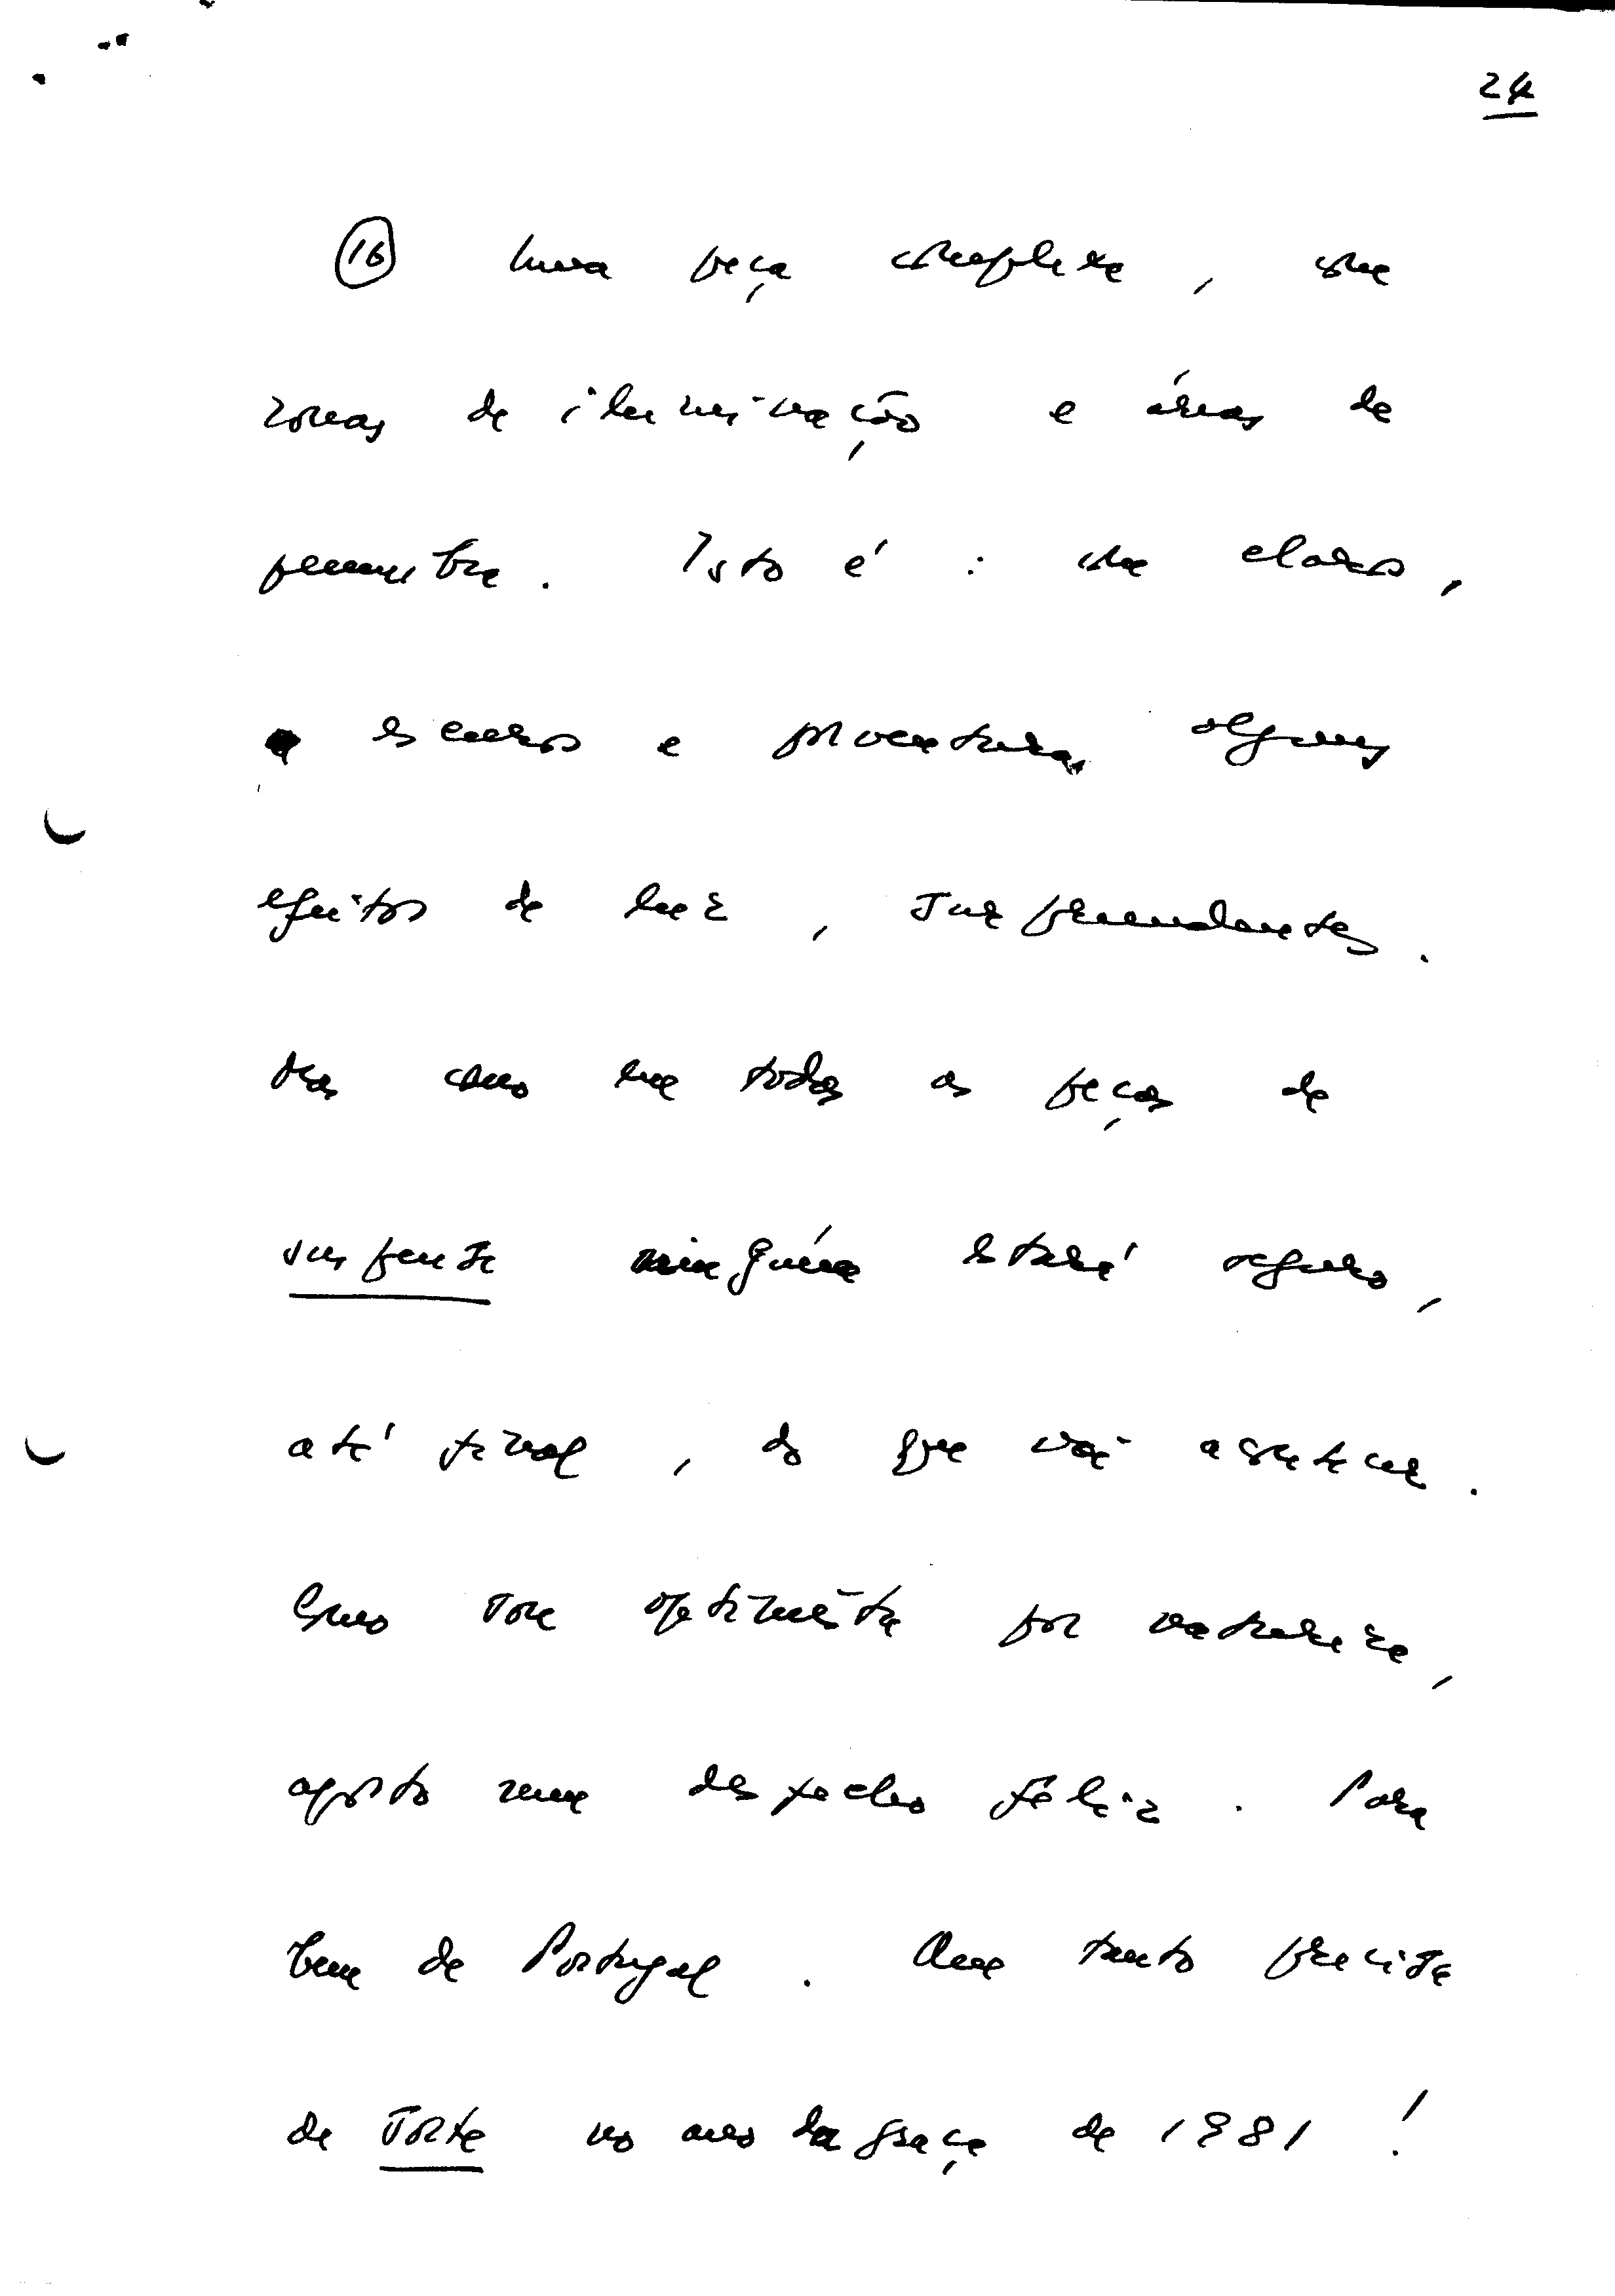 24
16 Numa peça complexa, com
zonas de iluminação e áreas de
penumbra. Isto é: com claros,
escuros e porventura, alguns
efeitos de luz, surpreendentes.
Mas como em todas as peças de
suspense ninguém estará seguro,
até final, do que vai acontecer.
Como sou optimista por natureza,
aposto num desfecho feliz. Para
bem de Portugal. Que tanto precisa
de sorte no ano da graça de 1981!